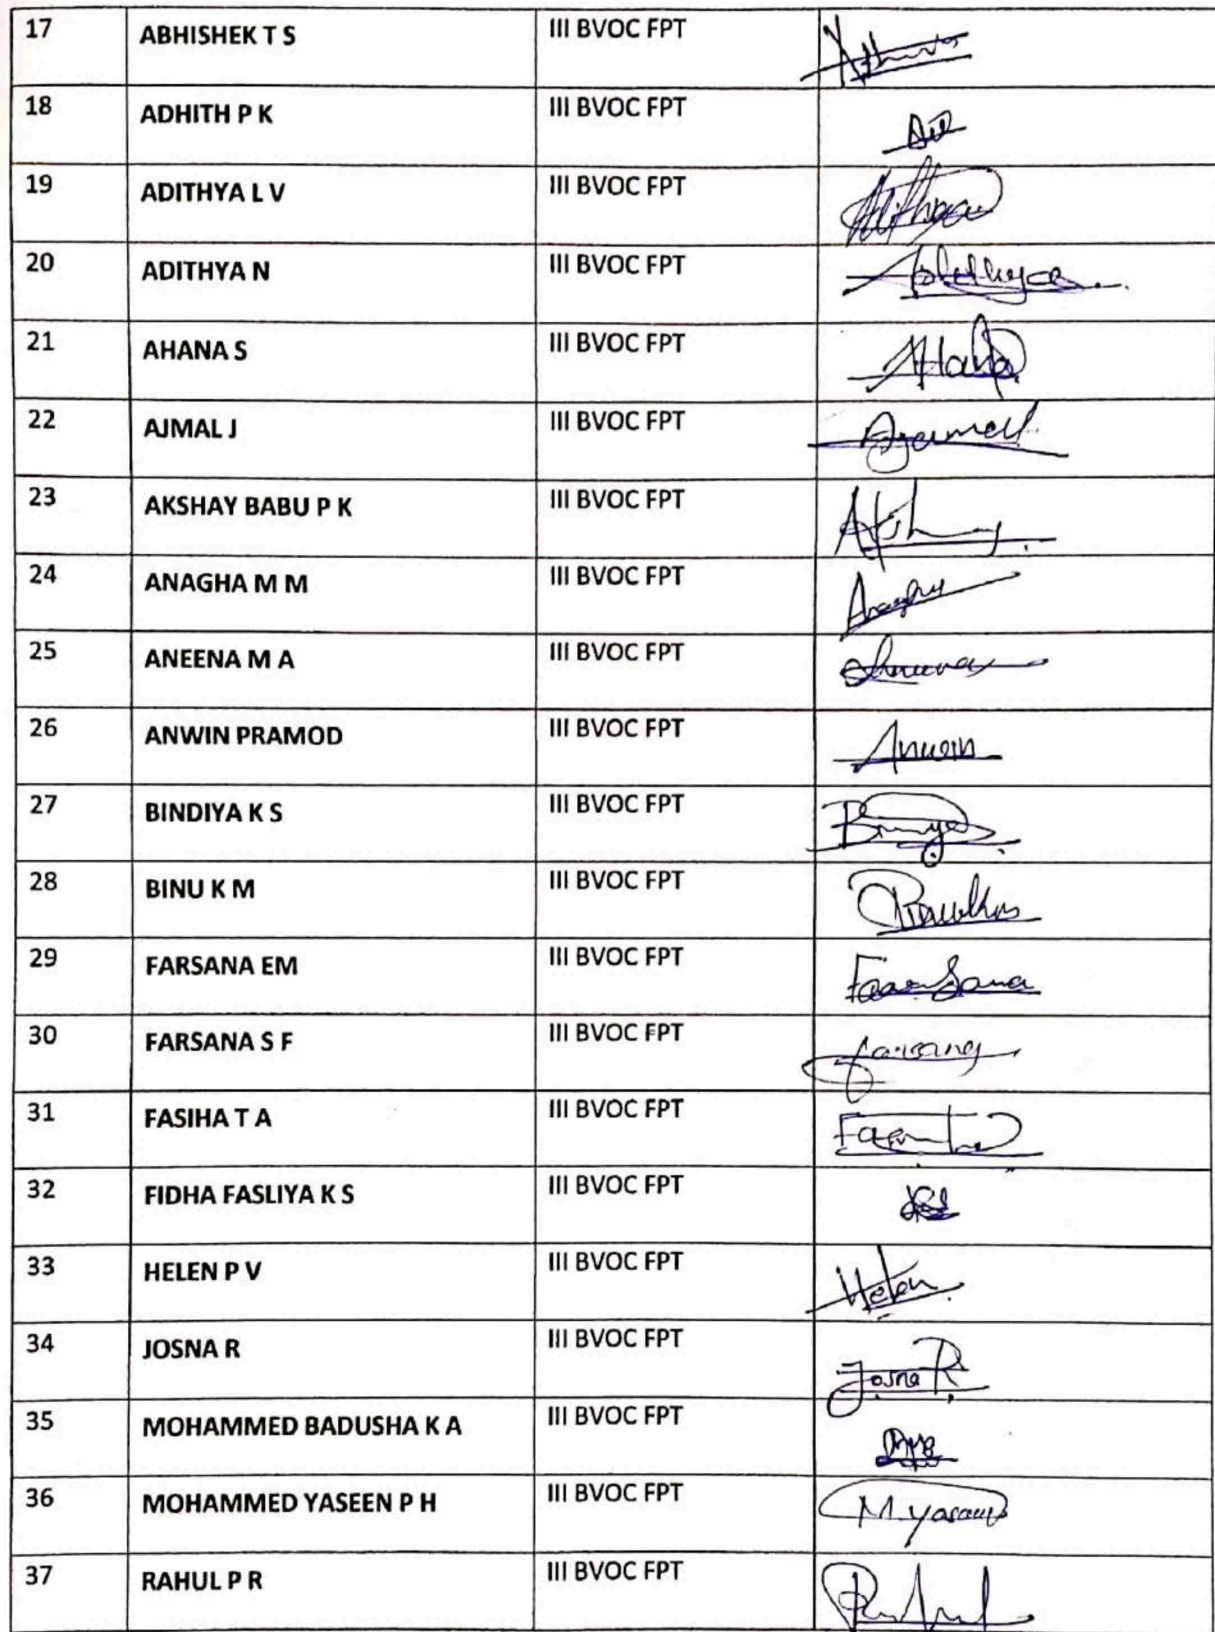 17 ABHISHEK T S III BVOC FPT
18 ADHITH P K III BVOC FPT
19 ADITHYA L V III BVOC FPT
20 ADITHYA N III BVOC FPT
21 AHANA S III BVOC FPT
22 AJMAL J III BVOC FPT
23 AKSHAY BABU P K III BVOC FPT
24 ANAGHA M M III BVOC FPT
25 ANEENA M A III BVOC FPT
26 ANWIN PRAMOD III BVOC FPT
27 BINDIYA K S III BVOC FPT
28 BINU K M III BVOC FPT
29 FARSANA EM III BVOC FPT
30 FARSANA S F III BVOC FPT
31 FASIHA T A III BVOC FPT
32 FIDHA FASLIYA K S III BVOC FPT
33 HELEN P V III BVOC FPT Helen
34 JOSNA R III BVOC FPT Josna R
35 MOHAMMED BADUSHA K A III BVOC FPT
36 MOHAMMED YASEEN P H III BVOC FPT
37 RAHUL P R III BVOC FPT